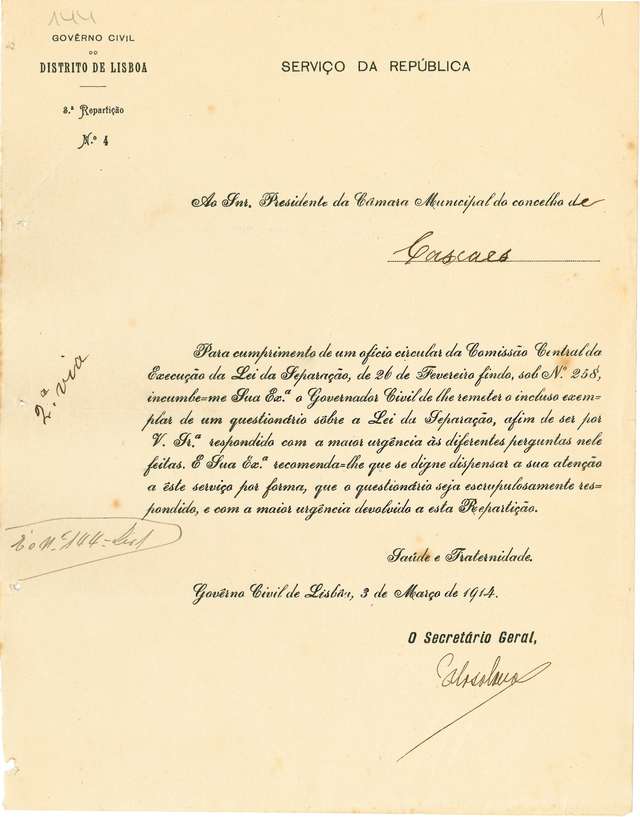 144
1
GOVÊRNO CIVIL
DO
DISTRITO DE LISBOA
3.ª Repartição
N.º 4
SERVIÇO DA REPÚBLICA
Ao Snr. Presidente da Câmara Municipal do concelho de
Cascaes
2.ª via
Para cumprimento de um ofício circular da Comissão Central da
Execução da Lei da Separação, de 26 de Fevereiro findo, sob N.º 258,
incumbe=me Sua Ex.ª o Governador Civil de lhe remeter o incluso exem-
plar de um questionário sôbre a Lei da Separação, afim de ser por
V. Sr.ª respondido com a maior urgência às diferentes perguntas nele
feitas. E Sua Ex.ª recomenda=lhe que se digne dispensar a sua atenção
a êste serviço por forma, que o questionário seja escrupulosamente res-
pondido, e com a maior urgência devolvido a esta Repartição.
É o N.º 144
Saúde e Fraternidade.
Govêrno Civil de Lisbôa, 3 de Março de 1914.
O Secretário Geral,